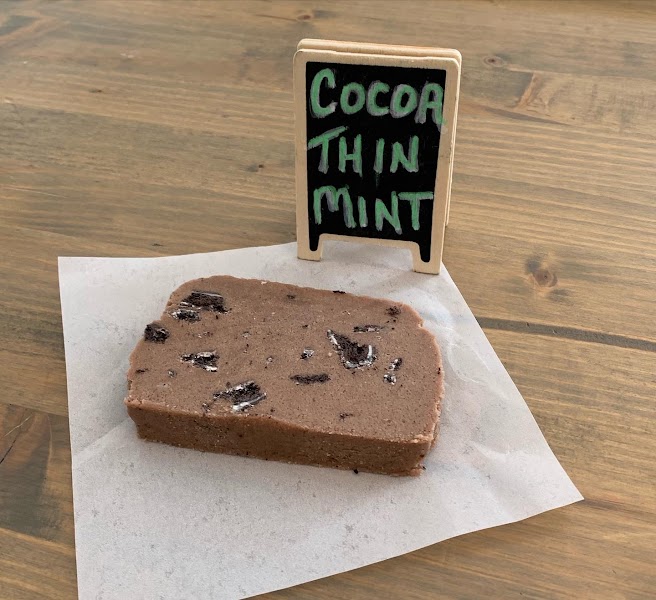 COCOA
THIN
MINT